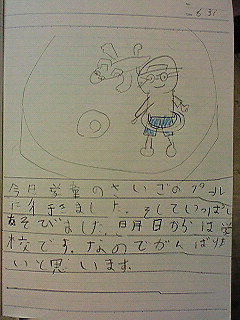 6 31
今日学童のさいごのプール
に行きました。そしていっぱい
あそびました。明日からは学
校です。なのでがんばりた
いと思います。